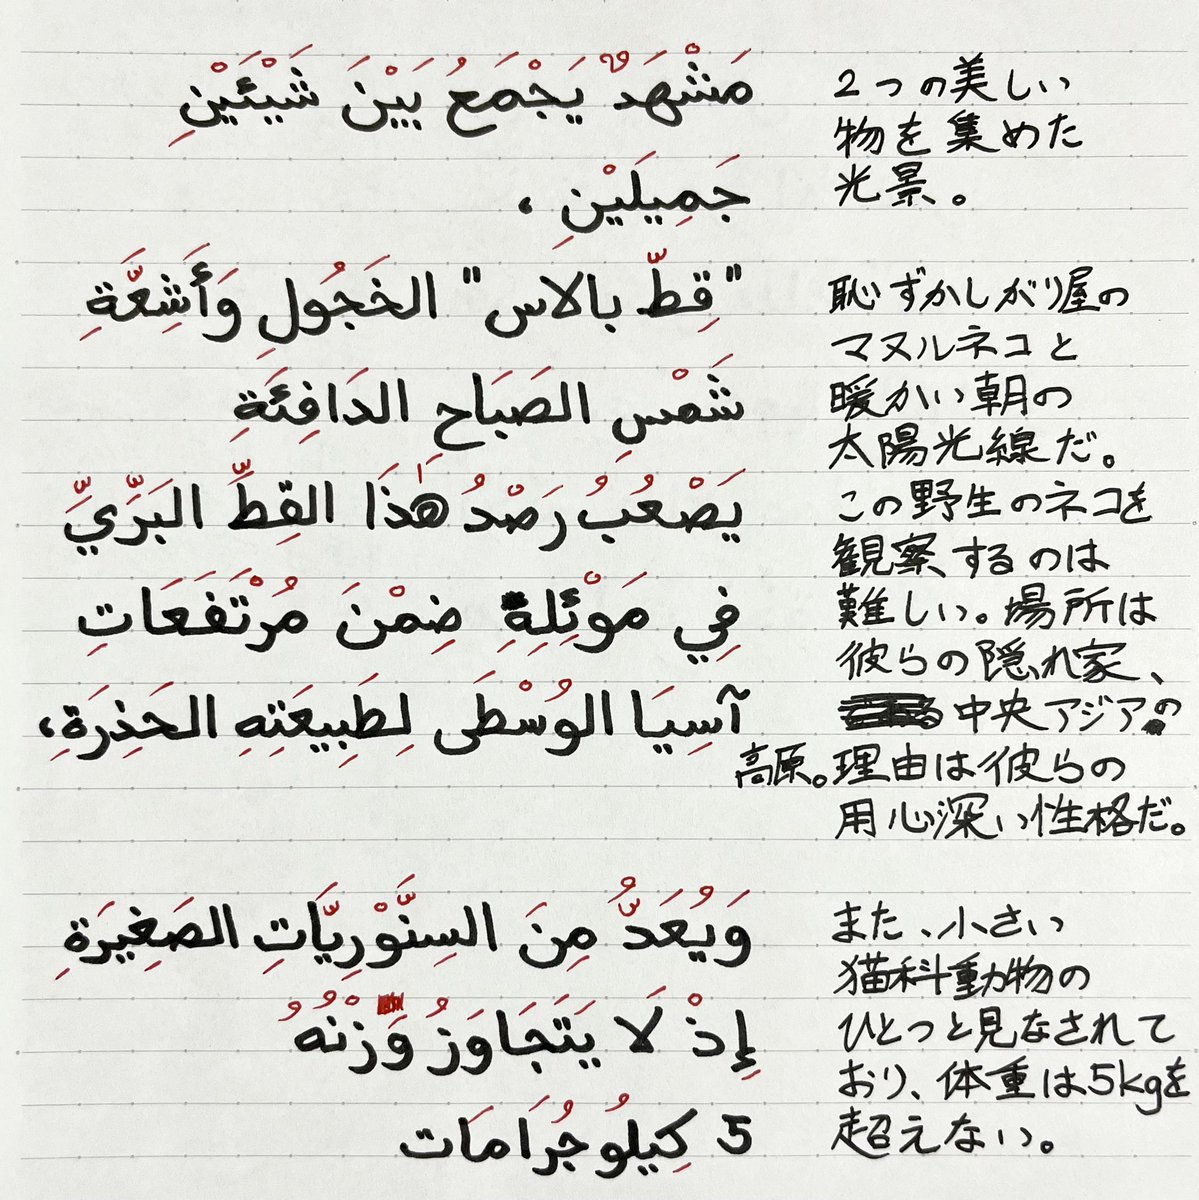 مَشْهَدٌ يَجْمَعُ بَيْنَ شَيْئَيْنِ
جَمِيلَيْنِ،
"قِطِّ بالاس" الخَجُولِ وَأَشِعَّةِ
شَمْسِ الصَبَاحِ الدَافِئَةِ
يَصْعُبُ رَصْدُ هٰذَا القِطِّ البَرِّيِّ
فِي مَوْئِلِهِ ضِمْنَ مُرْتَفَعَاتِ
آسِيَا الوُسْطَى لِطَبِيعَتِهِ الحَذِرَةِ،
وَيُعَدُّ مِنَ السِنَّوْرِيَّاتِ الصَغِيرَةِ
إِذْ لَا يَتَجَاوَزُ وَزْنُهُ
5 كِيلُو جُرَامَات
2つの美しい
物を集めた
光景。
恥ずかしがり屋の
マヌルネコと
暖かい朝の
太陽光線だ。
この野生のネコを
観察するのは
難しい。場所は
彼らの隠れ家、
中央アジアの
高原。理由は彼らの
用心深い性格だ。
また、小さい
猫科動物の
ひとつと見なされて
おり、体重は5kgを
超えない。